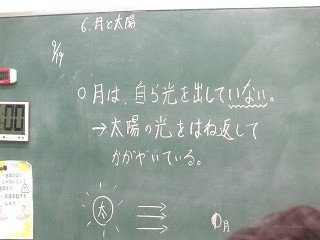 6. 月と太陽
9/19
○月は、自ら光を出していない。
→太陽の光をはね返して
かがやいている。
太
月